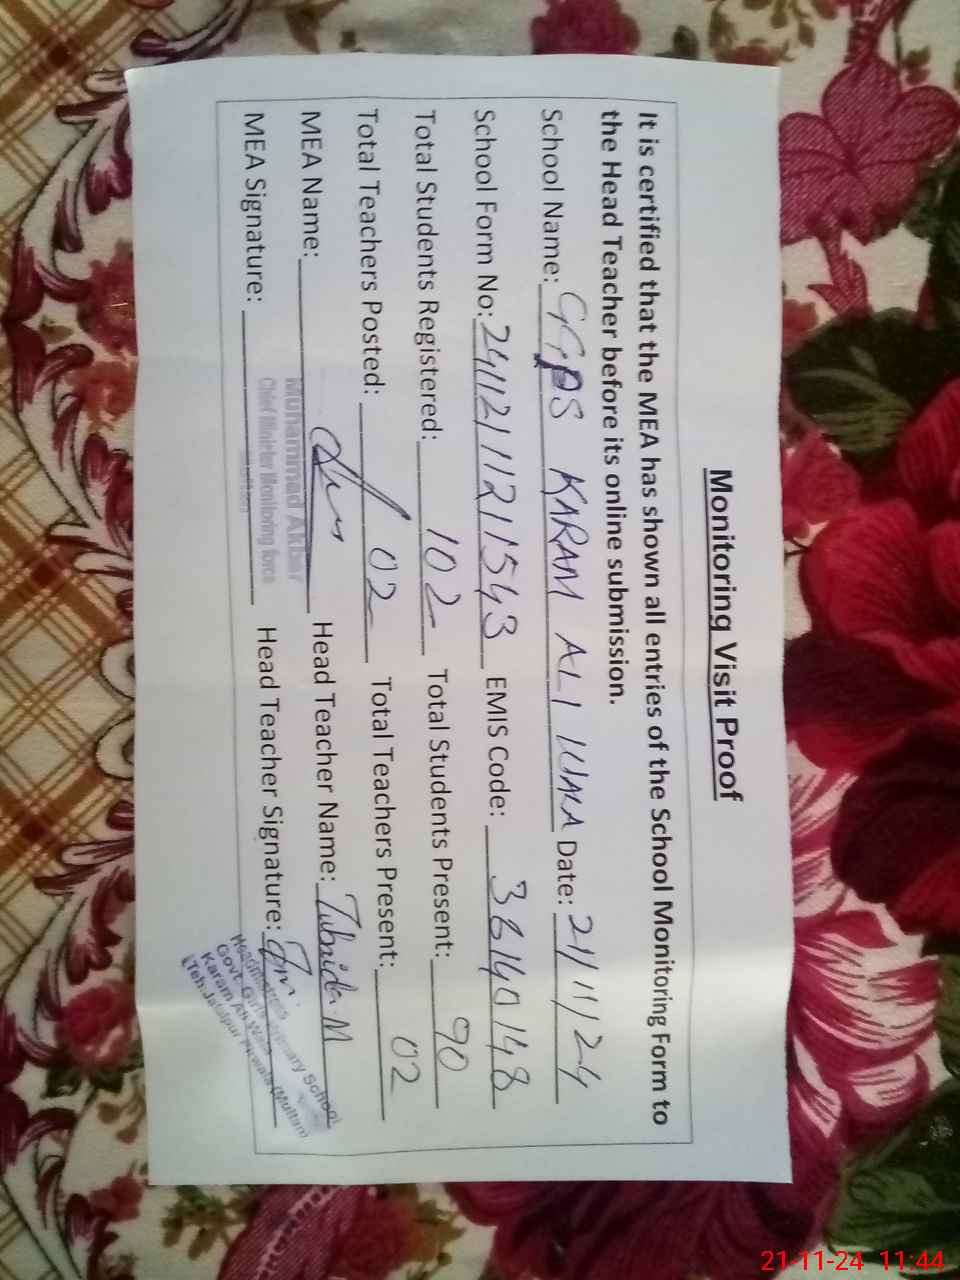 Monitoring Visit Proof
It is certified that the MEA has shown all entries of the School Monitoring Form to
the Head Teacher before its online submission.
School Name: GGPS KARAM ALI WALA Date: 21/11/24
School Form No: 24112111211543 EMIS Code: 36140148
Total Students Registered: 102 Total Students Present: 90
Total Teachers Posted: 02 Total Teachers Present: 02
MEA Name: Head Teacher Name: M
Muhammad Akbar
MEA Signature: Head Teacher Signature:
Chief Minister Monitoring force
Multan
Headmistress
Govt. Girls Primary School
Karam Ali Wala
Teh: Jalalpur Pirwala (Multan)
21-11-24 11:44